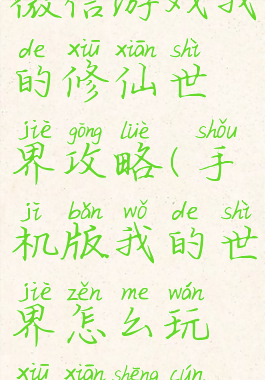 微信游戏我
de xiū xiān shì
的修仙世
jiè gōng lüè shǒu
界攻略(手
jī bǎn wǒ de shì
机版我的世
jiè zěn me wán
界怎么玩
xiū xiān shēng cún